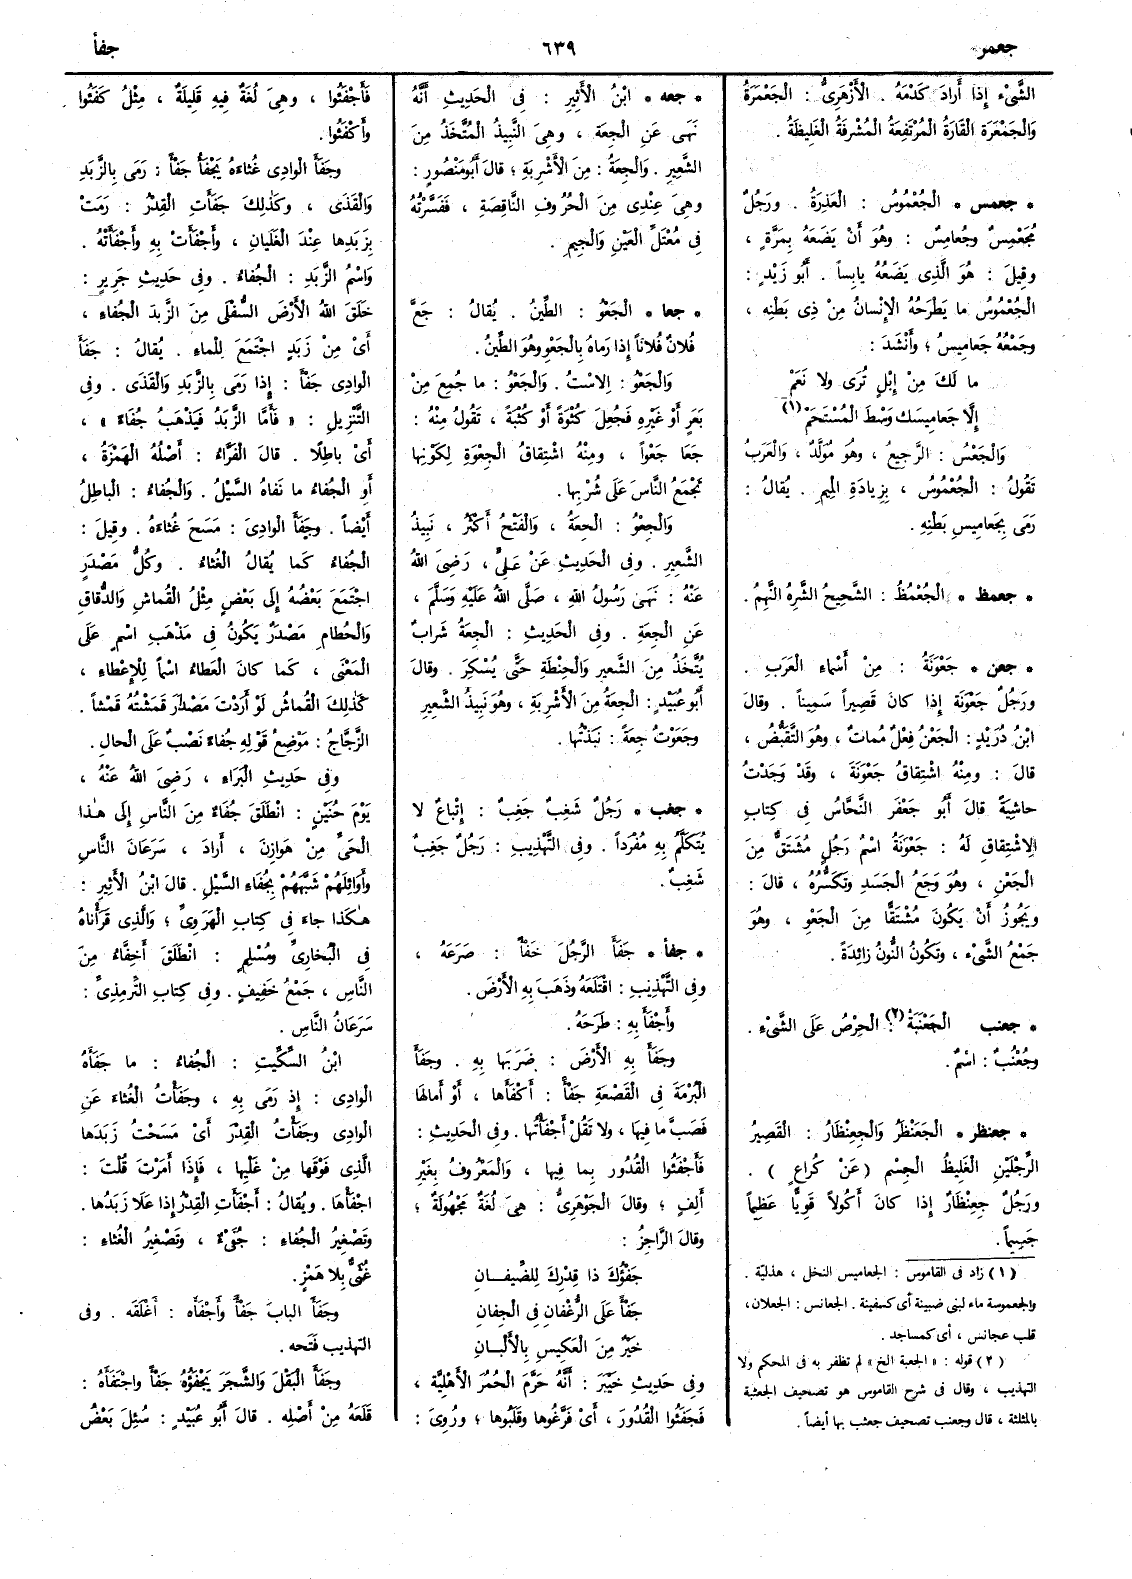 جعمر
٦٣٩
جفأ
الشَّىْء إِذَا أَرادَ كَدْمَهُ . الْأَزْهَرِىُّ : الْجَعْمَرَةُ
وَالْجَمْعَرَة الْقَارَةُ الْمُرْتَفِعَةُ الْمُشْرِفَةُ الْغَلِيظَةُ .
• جعمس • الْجُعْمُوسُ : الْعَذِرَةُ . وَرَجُلٌ
مُجَعْمِسٌ وَجُعامِسٌ : وَهُوَ أَنْ يَضَعَهُ بِمَرَّةٍ ،
وقِيلَ : هُوَ الَّذِى يَضَعُهُ يابِساً . أَبُو زَيْدٍ :
الْجُعْمُوسُ ما يَطْرَحُهُ الْإِنْسانُ مِنْ ذِى بَطْنِهِ ،
وجَمْعُهُ جَعامِيسُ ؛ وأَنْشَدَ :
ما لَكَ مِنْ إِبْلٍ تُرَى ولا نَعَمْ
إِلَّا جَعامِيسَك وَسْطَ الْمُسْتَحَمْ (١)
وَالْجَعْسُ : الرَّجِيعُ ، وهُوَ مُوَلَّدٌ ، والْعَرَبُ
تَقُولُ : الْجُعْمُوسُ ، بِزِيادَةِ الْمِيمِ . يُقالُ :
رَمَى بِجَعامِيسِ بَطْنِهِ .
• جعمظ • الْجُعْمُظُ : الشَّحِيحُ الشَّرِهُ النَّهِمُ .
• جعن • جَعْوَنَةُ : مِنْ أَسْماءِ الْعَرَبِ .
ورَجُلٌ جَعْوَنَة إِذَا كانَ قَصِيراً سَمِيناً . وقالَ
ابْنُ دُرَيْدٍ : الْجَعْنُ فِعْلٌ مُماتٌ ، وهُوَ التَّقَبُّضُ ،
قالَ : ومِنْهُ اشْتِقاقُ جَعْوَنَةَ ، وقَدْ وَجَدْتُ
حاشِيَةً قالَ أَبُو جَعْفَر النَّحَّاسُ فِى كِتابِ
الِاشْتِقاقِ لَهُ : جَعْوَنَةُ اسْمُ رَجُلٍ مُشْتَقٌّ مِنَ
الْجَعْنِ ، وهُوَ وَجَعُ الْجَسَدِ وتَكَسُّرُهُ ، قالَ :
ويَجُوزُ أَنْ يَكُونَ مُشْتَقًّا مِنَ الْجَعْوِ ، وهُوَ
جَمْعُ الشَّىْء ، وتَكُونُ النُّونُ زائِدَةً .
• جعنب الْجَعْنَبَةُ (٢) : الْحِرْصُ عَلَى الشَّىْءِ .
وجُعْنُبٌ : اسْمٌ .
• جعنظر • الْجَعَنْظَرُ وَالْجِعِنْظَارُ : الْقَصِيرُ
الرِّجْلَيْنِ الْغَلِيظُ الْجِسْم ( عَنْ كُراعٍ ) .
ورَجُلٌ جِعِنْظَارٌ إِذا كانَ أَكُولًا قَوِيًّا عَظِيماً
جَسِيماً .
( ١ ) زاد فى القاموس : الجعاميس النخل ، هذليّة .
والجعموسة ماء لبنى ضبينة أى كسفينة . الجعانس : الجعلان ،
قلب عجانس ، أى كمساجد .
( ٢ ) قوله : « الجعبة الخ » لم تظفر به فى المحكم ولا
التهذيب ، وقال فى شرح القاموس هو تصحيف الجعثبة
بالمثلثة ، قال وجعنب تصحيف جعثب بها أيضاً .
• جعه • ابْنُ الْأَثِيرِ : فِى الْحَدِيثِ أَنَّهُ
نَهَى عَنِ الْجِعَةِ ، وهِىَ النَّبِيذُ الْمُتَّخَذُ مِنَ
الشَّعِيرِ . وَالْجِعَةُ : مِنَ الْأَشْرِبَةِ ؛ قالَ أَبُومَنْصُورٍ :
وهِىَ عِنْدِى مِنَ الْحُرُوفِ النَّاقِصَةِ ، فَفَسَّرْتُهُ
فِى مُعْتَلِّ الْعَيْنِ وَالْجِيمِ .
• جعا • الْجَعْوُ : الطِّينُ . يُقالُ : جَعَّ
فُلانٌ فُلاناً إِذا رَماهُ بِالْجَعْوِ وهُوَ الطِّينُ .
وَالْجَعْوُ : الِاسْتُ . وَالْجَعْوُ : ما جُمِعَ مِنْ
بَعَرٍ أَوْ غَيْرِهِ فَجُعِلَ كُثْوَةً أَوْ كُثْبَةً ، تَقُولُ مِنْهُ :
جَعَا جَعْواً ، ومِنْهُ اشْتِقاقُ الْجِعْوَةِ لِكَوْنِها
تَجْمَعُ النَّاسَ عَلَى شُرْبِها .
وَالْجِعْوُ : الْجِعَةُ ، وَالْفَتْحُ أَكْثَرُ ، نَبِيذُ
الشَّعِيرِ . وفِى الْحَدِيثِ عَنْ عَلِىٍّ ، رَضِىَ اللهُ
عَنْهُ : نَهَى رَسُولُ اللهِ ، صَلَّى اللهُ عَلَيْهِ وَسَلَّمَ ،
عَنِ الْجِعَةِ . وفِى الْحَدِيثِ : الْجِعَةُ شَرابٌ
يُتَّخَذُ مِنَ الشَّعِيرِ وَالْحِنْطَةِ حَتَّى يُسْكِرَ . وقالَ
أَبُو عُبَيْدٍ : الْجِعَةُ مِنَ الْأَشْرِبَةِ ، وهُوَ نَبِيذُ الشَّعِيرِ
وجَعَوْتُ جِعَةً : نَبَذْتُها .
• جغب • رَجُلٌ شَغِبٌ جَغِبٌ : إِتْباعٌ لا
يُتَكَلَّمُ بِهِ مُفْرَداً . وفِى التَّهْذِيبِ : رَجُلٌ جَغِبٌ
شَغِبٌ .
• جفأ • جَفَأَ الرَّجُلَ جَفْأً : صَرَعَهُ ،
وفِى التَّهْذِيبِ : اقْتَلَعَهُ وذَهَبَ بِهِ الْأَرْضَ .
وأَجْفَأَ بِهِ : طَرَحَهُ .
وجَفَأَ بِهِ الْأَرْضَ : ضَرَبَها بِهِ . وجَفَأَ
الْبُرْمَةَ فِى الْقَصْعَةِ جَفْأً : أَكْفَأَها ، أَوْ أَمالَها
فَصَبَّ ما فِيها ، ولا تَقُلْ أَجْفَأْتُها . وفِى الْحَدِيثِ :
فَأَجْفَئُوا الْقُدُورَ بِما فِيها ، وَالْمَعْرُوفُ بِغَيْرِ
أَلِفٍ ؛ وقالَ الْجَوْهَرِىُّ : هِىَ لُغَةٌ مَجْهُولَةٌ ؛
وقالَ الرَّاجِزُ :
جَفْؤُكَ ذا قِدْرِكَ لِلضِّيفــانِ
جَفْأً عَلَى الرُّغْفانِ فِى الْجِفانِ
خَيْرٌ مِنَ الْعَكِيسِ بِالْأَلْبــانِ
وفِى حَدِيثِ خَيْبَرَ : أَنَّهُ حَرَّمَ الْحُمُرَ الْأَهْلِيَّةَ ،
فَجَفَئُوا الْقُدُورَ ، أَىْ فَرَّغُوها وقَلَبُوها ؛ ورُوِىَ :
فَأَجْفَئُوا ، وهِىَ لُغَةٌ فِيهِ قَلِيلَةٌ ، مِثْلُ كَفَئُوا
وأَكْفَئُوا .
وجَفَأَ الْوادِى غُثاءَهُ يَجْفَأُ جَفْأً : رَمَى بِالزَّبَدِ
وَالْقَذَى ، وكَذَلِكَ جَفَأَتِ الْقِدْرُ : رَمَتْ
بِزَبَدِها عِنْدَ الْغَلَيانِ ، وأَجْفَأَتْ بِهِ وأَجْفَأَتْهُ .
وَاسْمُ الزَّبَدِ : الْجُفاءُ . وفِى حَدِيثِ جَرِيرٍ :
خَلَقَ اللهُ الْأَرْضَ السُّفْلَى مِنَ الزَّبَدِ الْجُفاءِ ،
أَىْ مِنْ زَبَدٍ اجْتَمَعَ لِلْماءِ . يُقالُ : جَفَأَ
الْوادِى جَفْأً : إِذا رَمَى بِالزَّبَدِ وَالْقَذَى . وفِى
التَّنْزِيلِ : « فَأَمَّا الزَّبَدُ فَيَذْهَبُ جُفَاءً » ،
أَىْ باطِلًا . قالَ الْفَرَّاءُ : أَصْلُهُ الْهَمْزَةُ ،
أَوِ الْجُفاءُ ما نَفاهُ السَّيْلُ . وَالْجُفاءُ : الْباطِلُ
أَيْضاً . وجَفَأَ الْوادِىَ : مَسَحَ غُثاءَهُ . وقِيلَ :
الْجُفاءُ كَما يُقالُ الْغُثاءُ . وكُلُّ مَصْدَرٍ
اجْتَمَعَ بَعْضُهُ إِلَى بَعْضٍ مِثْلُ الْقُماشِ وَالدُّقاقِ
وَالْحُطامِ مَصْدَرٌ يَكُونُ فِى مَذْهَبِ اسْمٍ عَلَى
الْمَعْنَى ، كَما كانَ الْعَطاءُ اسْماً لِلْإِعْطاءِ ،
كَذَلِكَ الْقُماشُ لَوْ أَرَدْتَ مَصْدَرَ قَمَشْتُهُ قَمْشاً .
الزَّجَّاجُ : مَوْضِعُ قَوْلِهِ جُفاءً نَصْبٌ عَلَى الْحالِ .
وفِى حَدِيثِ الْبَراءِ ، رَضِىَ اللهُ عَنْهُ ،
يَوْمَ حُنَيْنٍ : انْطَلَقَ جُفَاءٌ مِنَ النَّاسِ إِلَى هٰذا
الْحَىِّ مِنْ هَوازِنَ ، أَرادَ ، سَرَعَانَ النَّاسِ
وأَوائِلَهُمْ شَبَّهَهُمْ بِجُفاءِ السَّيْلِ . قالَ ابْنُ الْأَثِيرِ :
هٰكَذا جاءَ فِى كِتابِ الْهَرَوِىِّ ؛ وَالَّذِى قَرَأْناهُ
فِى الْبُخارِىِّ ومُسْلِمٍ : انْطَلَقَ أَخِفَّاءُ مِنَ
النَّاسِ ، جَمْعُ خَفِيفٍ . وفِى كِتابِ التِّرْمِذِىِّ :
سَرَعَانُ النَّاسِ .
ابْنُ السِّكِّيتِ : الْجُفاءُ : ما جَفَأَهُ
الْوادِى : إِذا رَمَى بِهِ ، وجَفَأْتُ الْغُثاءَ عَنِ
الْوادِى وجَفَأْتُ الْقِدْرَ أَىْ مَسَحْتُ زَبَدَها
الَّذِى فَوْقَها مِنْ غَلْيِها ، فَإِذا أَمَرْتَ قُلْتَ :
اجْفَأْها . ويُقالُ : أَجْفَأَتِ الْقِدْرُ إِذا عَلَا زَبَدُها .
وتَصْغِيرُ الْجُفاءِ : جُفَىْءٌ ، وتَصْغِيرُ الْغُثاءِ :
غُثَىٌّ بِلا هَمْزٍ .
وجَفَأَ البابَ جَفْأً وأَجْفَأَه : أَغْلَقَه . وفى
التهذيب فَتَحه .
وجَفَأَ الْبَقْلَ وَالشَّجَرَ يَجْفَؤُهُ جَفْأً وَاجْتَفَأَهُ :
قَلَعَهُ مِنْ أَصْلِهِ . قالَ أَبُو عُبَيْدٍ : سُئِلَ بَعْضُ